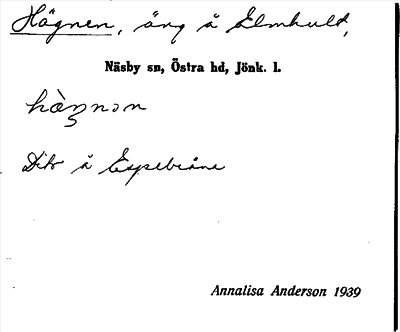 Hägnen, äng å Elmhult,
Näsby sn, Östra hd, Jönk. l.
hàgnən
Dito å Espebråna
Annalisa Anderson 1939